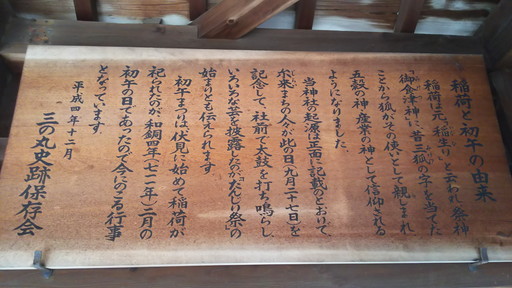 稲荷と初午の由来
稲荷は元、「稲生り」と云われ、祭神
「御食津神」に昔三狐の字を当てた
ことから狐がその使いとして親しまれ
五穀の神・産業の神として信仰される
ようになりました。
当神社の起源は正面に記載のとおりで、
尓来まちの人が此の日(九月二十七日)を
記念して、社前で太鼓を打ち鳴らし、
いろいろな芸を披露したのが「だんじり祭」の
始まりとも伝えられます
初午まつりは伏見に始めて稲荷が
祀られたのが和銅四年(七一一年)二月の
初午の日であったので今にのこる行事
となっています
平成四年十二月
三の丸史跡保存会